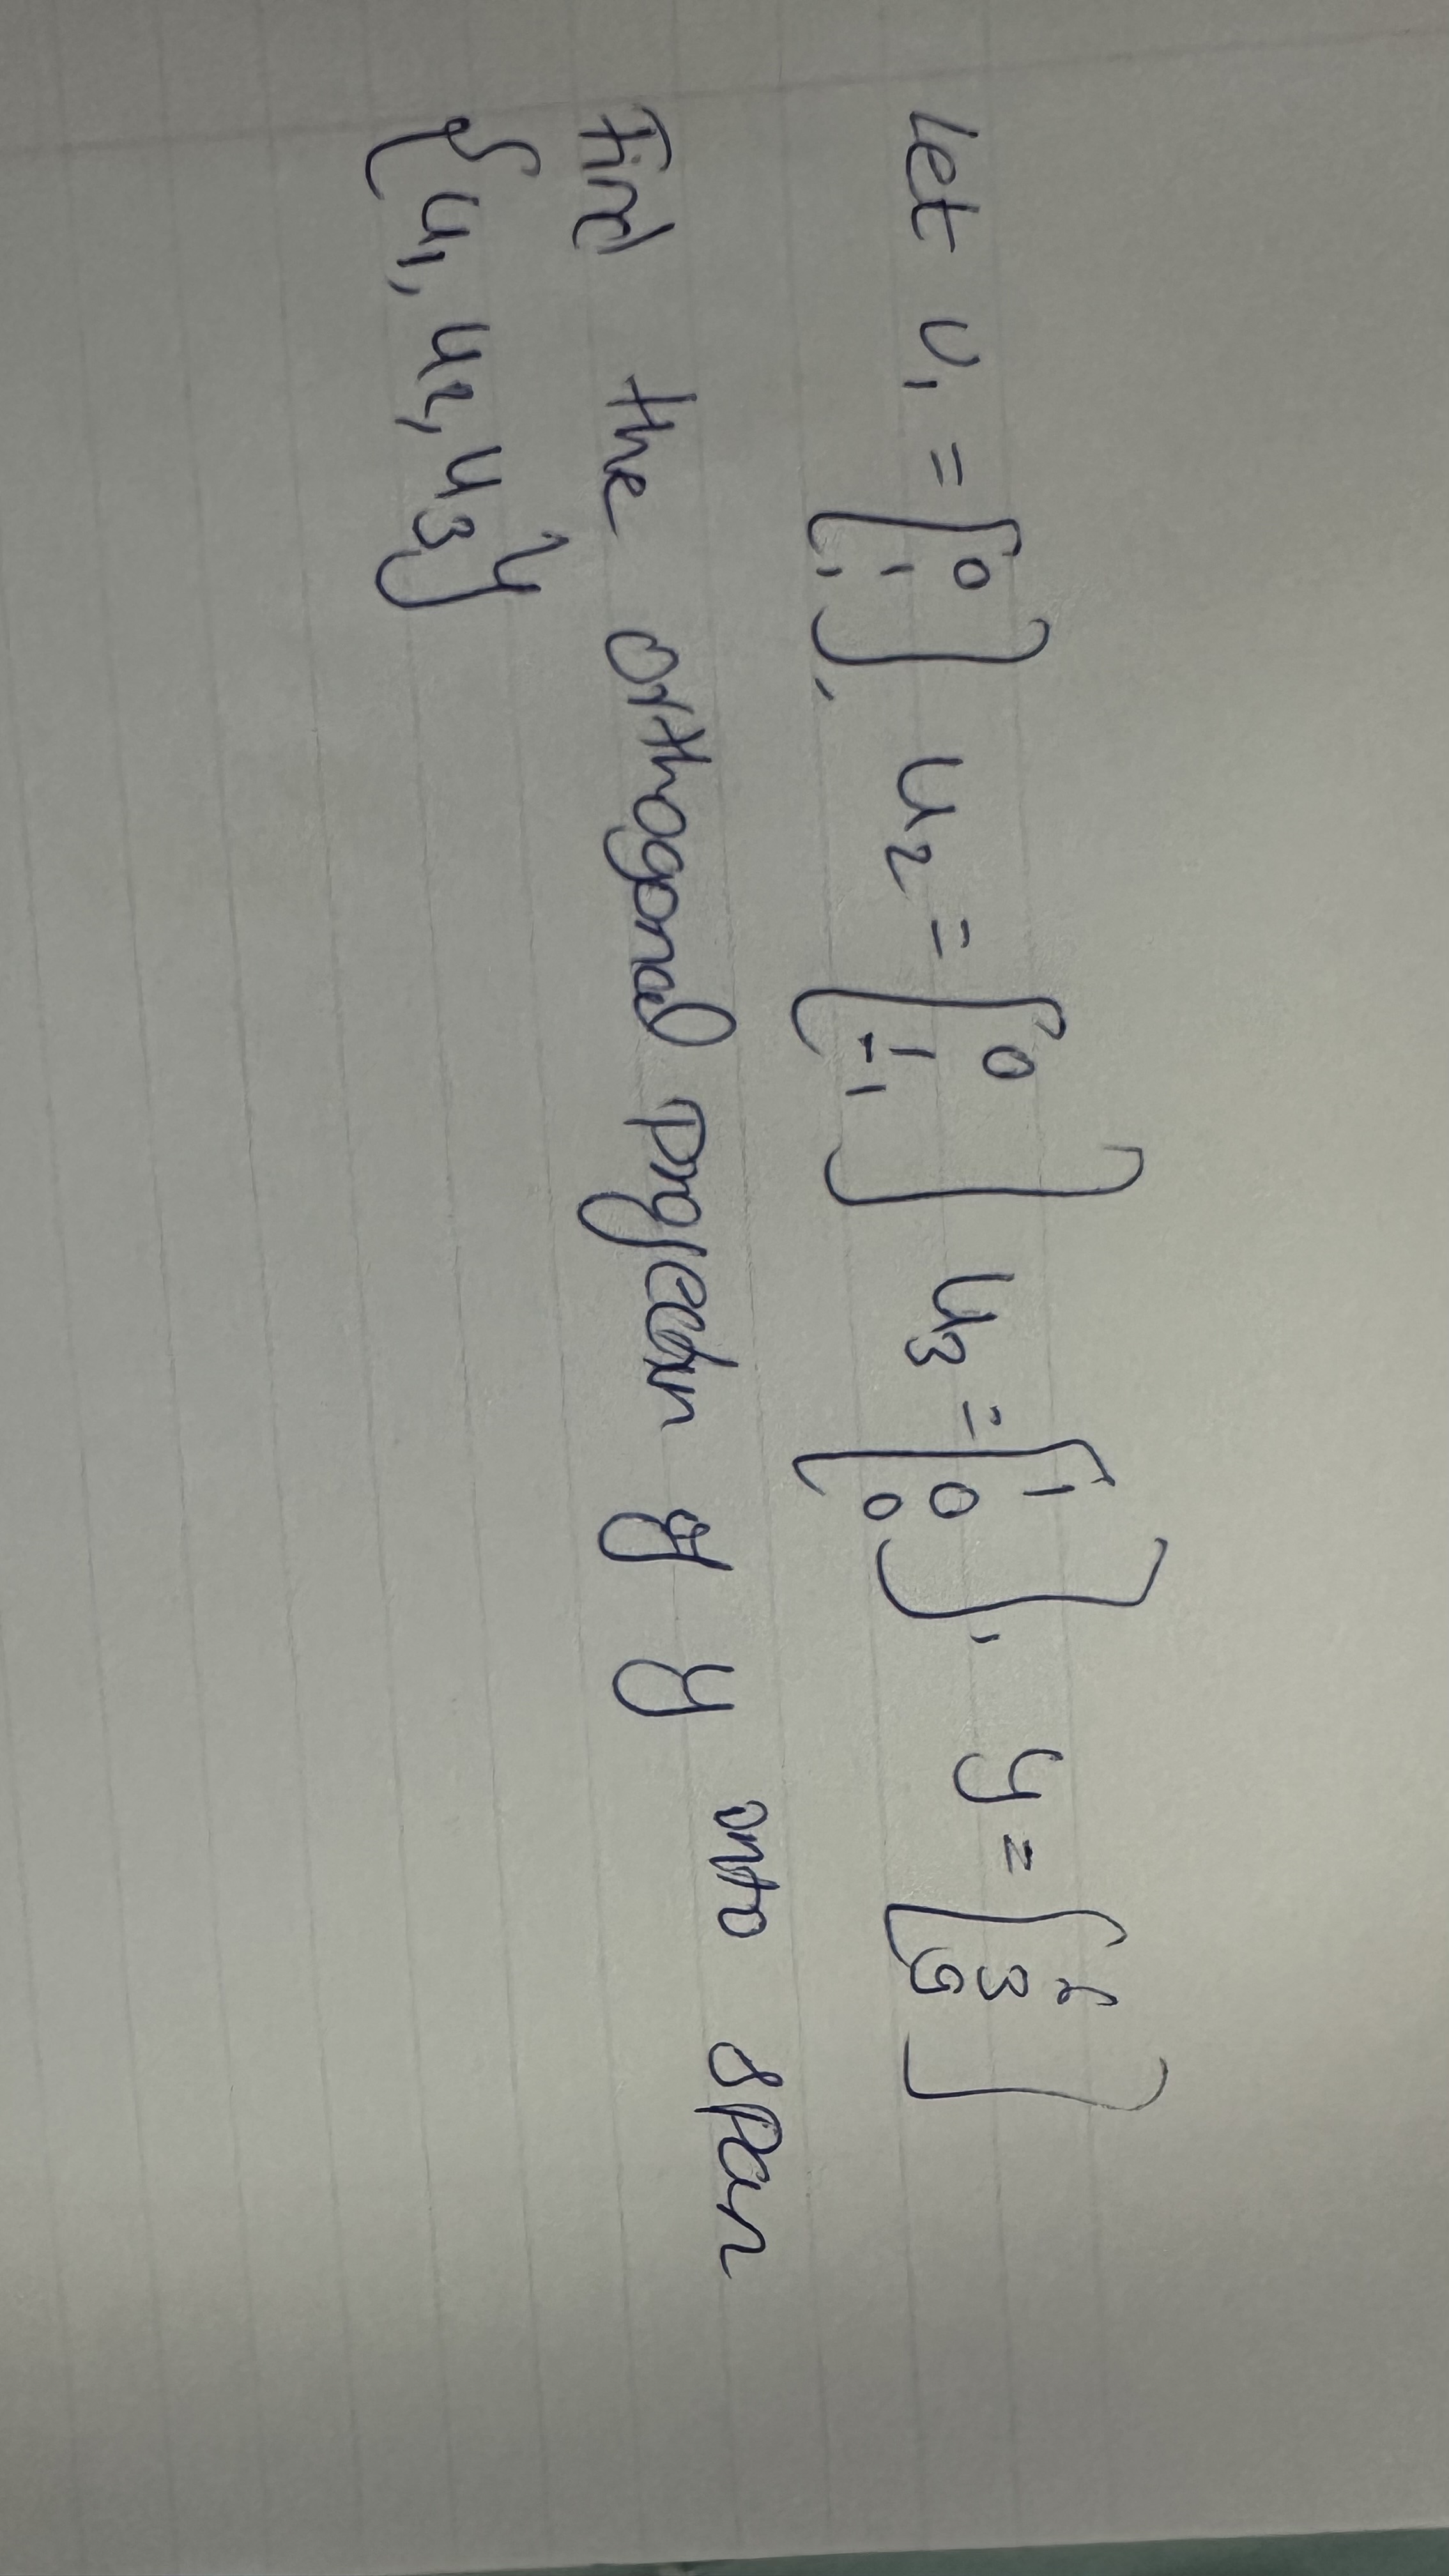 Let u₁ = [0 1 1], u₂ = [0 1 -1] u₃ = [1 0 0], y = [2 3 9]
Find the orthogonal projectn y y onto span
{u₁, u₂, u₃}